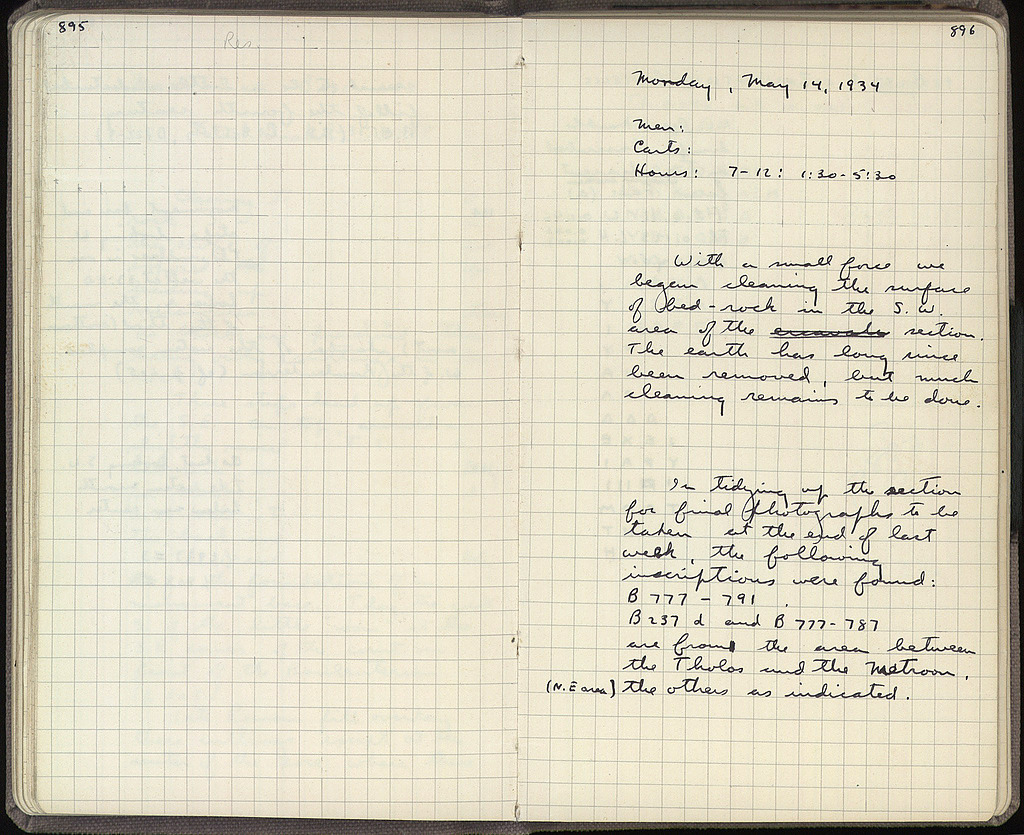 895
Res.
896
Monday, May 14, 1934
Men:
Carts:
Hours: 7-12: 1:30-5:30
With a small force we
began cleaning the surface
of bed-rock in the S.W.
area of the section.
The earth has long since
been removed, but much
cleaning remains to be done.
In tidying up the section
for final photographs to be
taken at the end of last
week, the following
inscriptions were found:
B 777 - 791.
B 237 d and B 777-787
are from the area between
the Tholos and the Metroon,
(N.E area) the others as indicated.